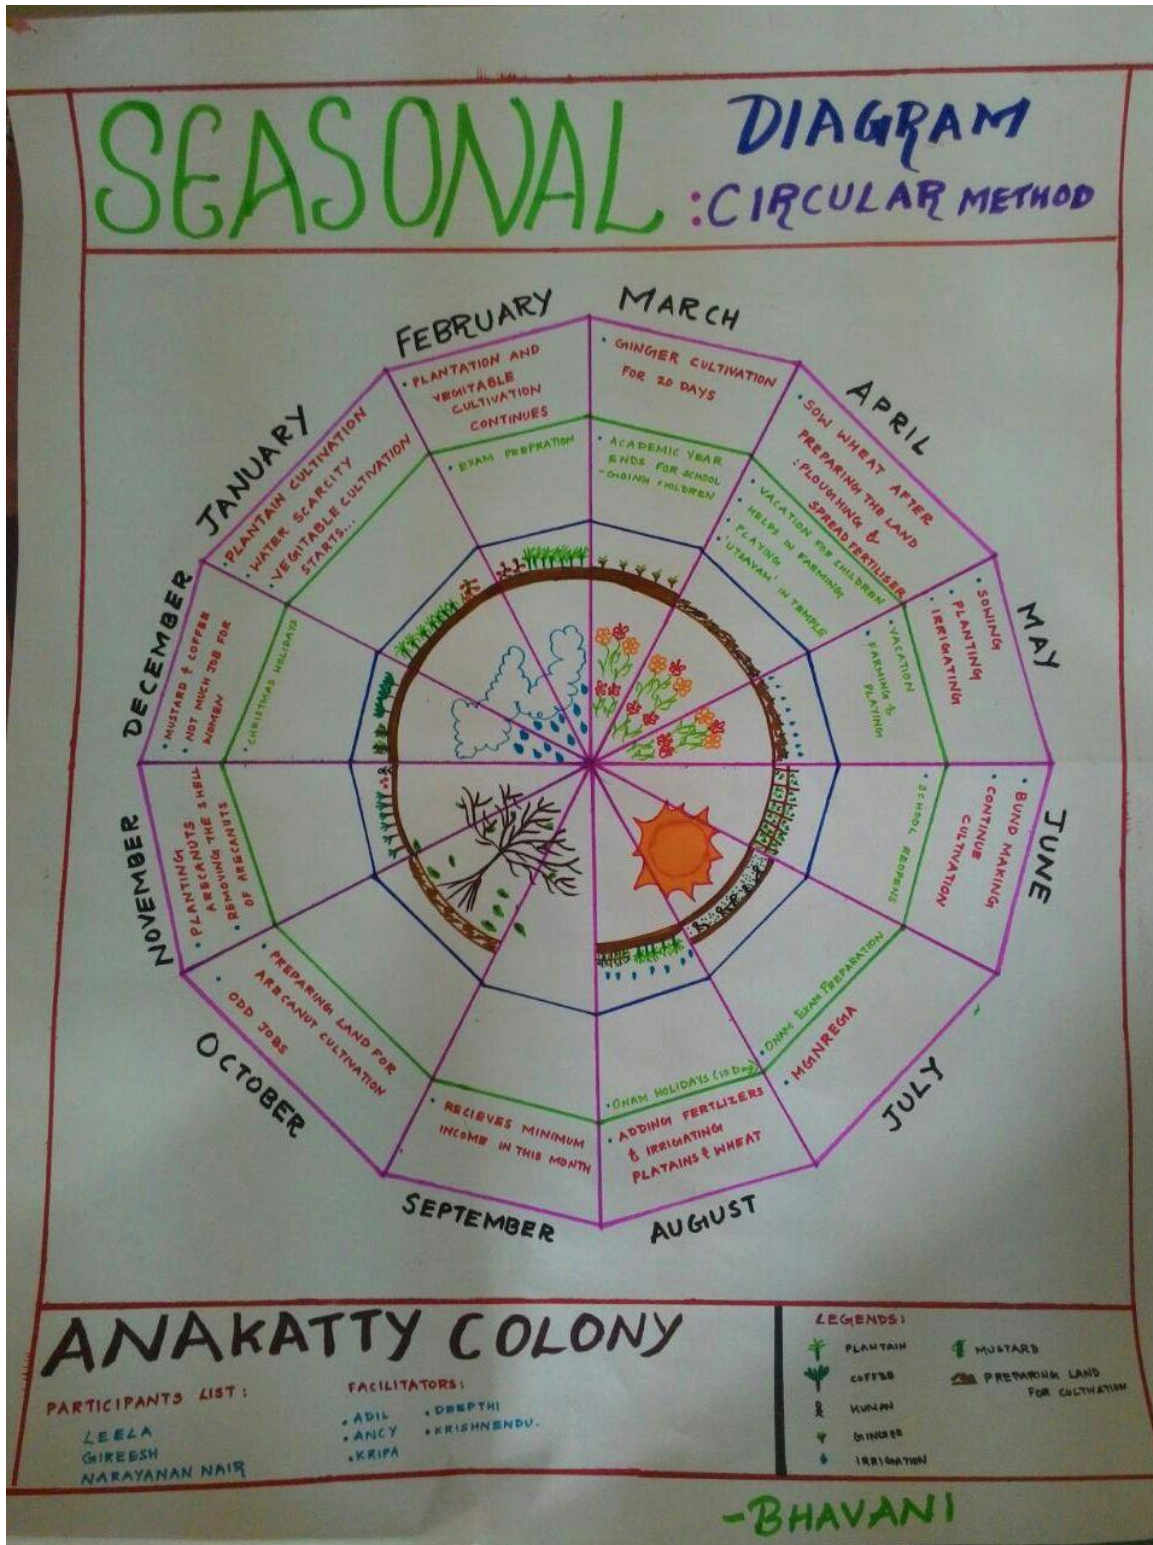 SEASONAL DIAGRAM
:CIRCULAR METHOD
FEBRUARY
• PLANTATION AND
VEGITABLE
CULTIVATION
CONTINUES
• EXAM PREPRATION
MARCH
• GINGER CULTIVATION
FOR 20 DAYS
• ACADEMIC YEAR
ENDS FOR SCHOOL
-GOING CHILDREN
APRIL
• SOW WHEAT AFTER
PREPARING THE LAND
: PLOUGHING &
SPREAD FERTILISER
• VACATION FOR CHILDREN
• HELPS IN FARMING
• PLAYING
• 'UTSAVAM' IN TEMPLE
MAY
• SOWING
• PLANTING
• IRRIGATING
• VACATION
• FARMING &
PLAYING
JUNE
• BUND MAKING
• CONTINUE
CULTIVATION
• SCHOOL REOPENS
JULY
• ONAM EXAM PREPARATION
• MGNREGIA
AUGUST
• ONAM HOLIDAYS (10 Days)
• ADDING FERTLIZERS
& IRRIGATING
PLATAINS & WHEAT
SEPTEMBER
• RECIEVES MINIMUM
INCOME IN THIS MONTH
OCTOBER
• PREPARING LAND FOR
ARECANUT CULTIVATION
• ODD JOBS
NOVEMBER
• PLANTING
ARECANUTS
• REMOVING THE SHELL
OF ARECANUTS
DECEMBER
• MUSTARD & COFFEE
• NOT MUCH JOB FOR
WOMEN
• CHRISTMAS HOLIDAYS
JANUARY
• PLANTAIN CULTIVATION
• WATER SCARCITY
• VEGITABLE CULTIVATION
STARTS...
ANAKATTY COLONY
PARTICIPANTS LIST:
LEELA
GIREESH
NARAYANAN NAIR
FACILITATORS:
• ADIL
• ANCY
• KRIPA
• DEEPTHI
• KRISHNENDU.
LEGENDS:
PLANTAIN
COFFEE
HUMAN
GINGER
IRRIGATION
MUSTARD
PREPARING LAND
FOR CULTIVATION
-BHAVANI